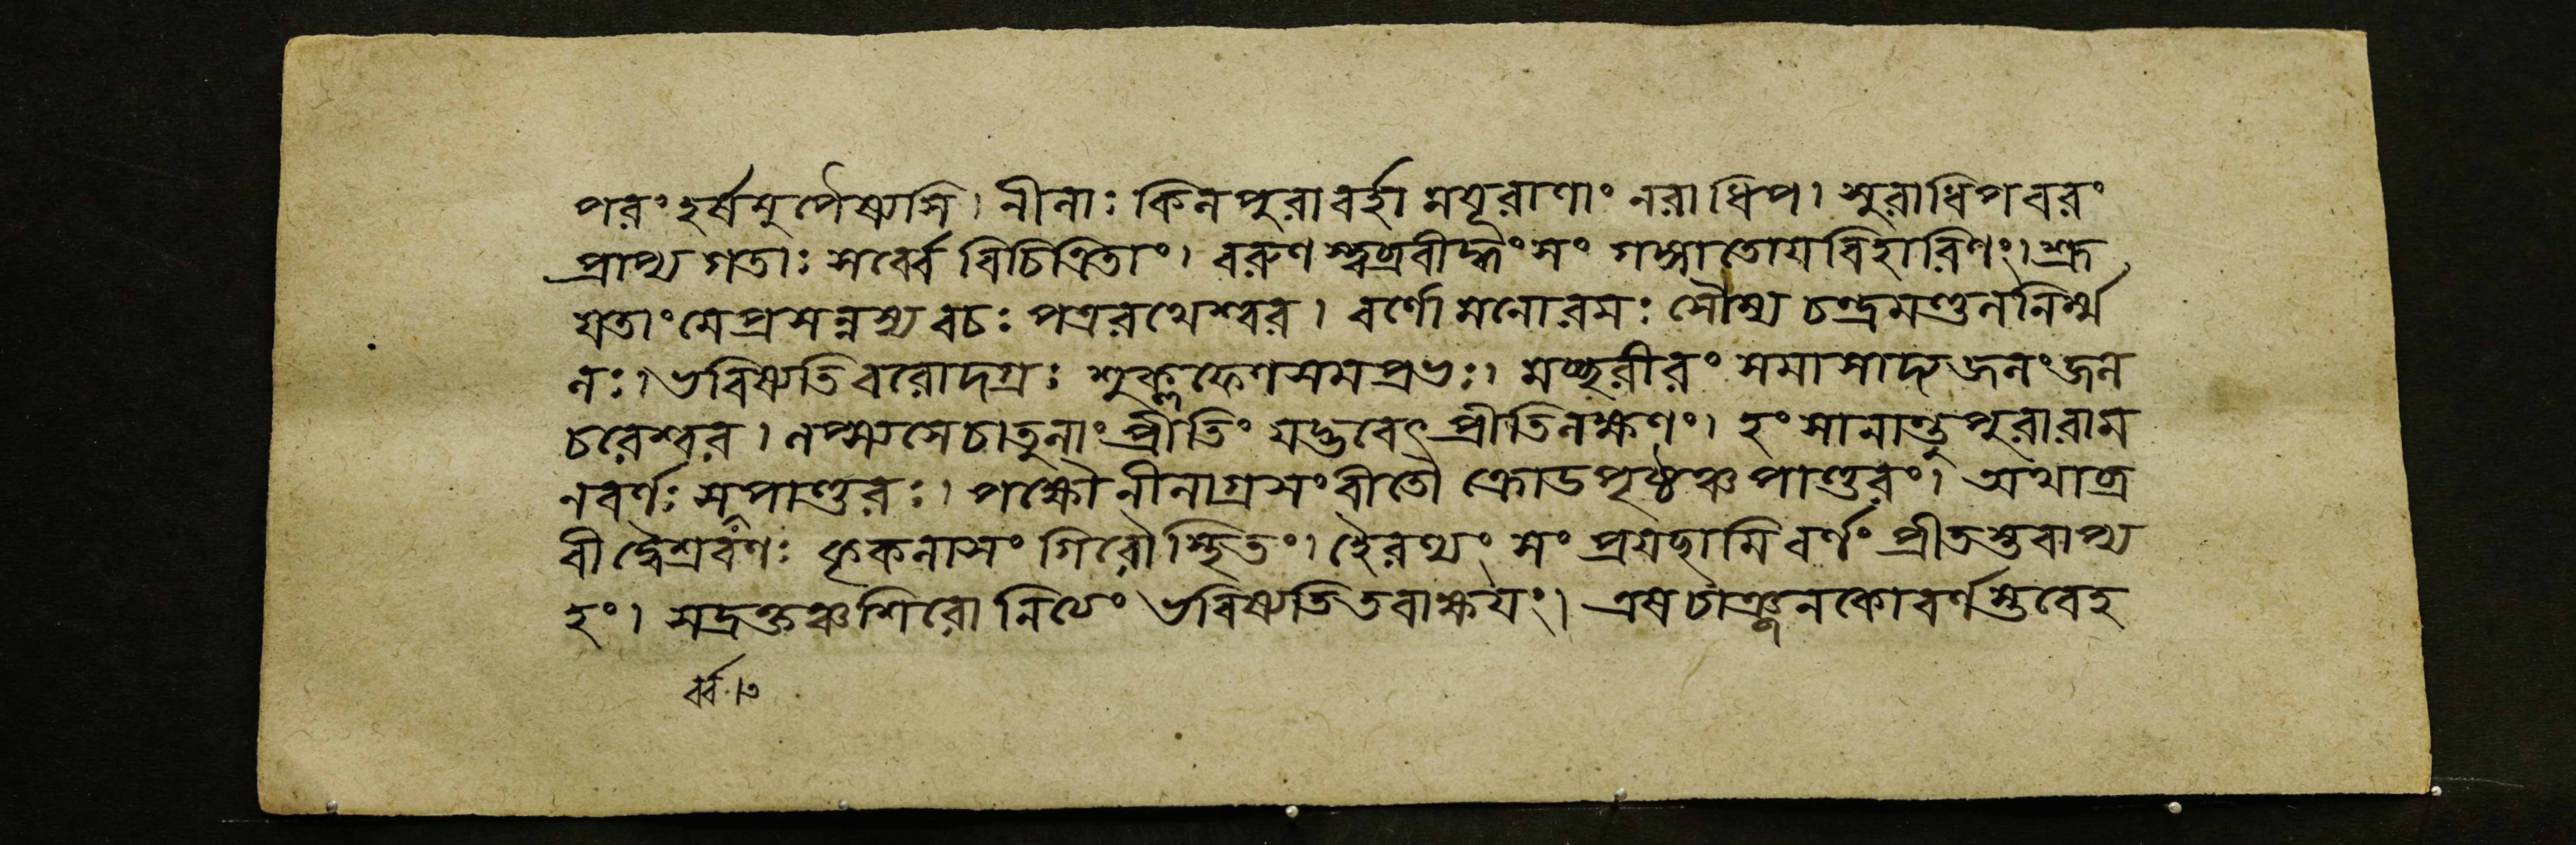 পরং হর্ষমুপৈষ্যসি। নীলাঃ কিল পুরা বর্হা ময়ূরাণাং নরাধিপ। সুরাধিপবরং
প্রাপ্য গতাঃ সর্ব্বে বিচিত্রিতাং। বরুণস্ত্বব্রবীদ্ধংসং গঙ্গাতোয়বিহারিণং। শ্রূ
য়তাং মে প্রসন্নস্য বচঃ পত্ররথেশ্বর। বর্ণো মনোরমঃ সৌম্য চন্দ্রমণ্ডলনির্ম্ম
লঃ। ভবিষ্যতি বরোদগ্রঃ শুক্লফেণসমপ্রভঃ। মচ্ছরীরং সমাসাদ্য জলং জল
চরেশ্বর। লপ্স্যসে চাতুলাং প্রীতিং মদ্ভবেৎ প্রীতিলক্ষণং। হংসানান্তু পুরা রাম
ন বর্ণঃ সুপাণ্ডুরঃ। পক্ষৌ নীলাগ্রসংবীতৌ ক্রোডপৃষ্ঠঞ্চ পাণ্ডুরং। অথাব্র
বীদ্বৈশ্রবণঃ কৃকলাসং গিরৌ স্থিতং। হৈরণ্যং সংপ্রয়ছামি বর্ণং প্রীতস্তবাপ্য
হং। সদ্রক্তঞ্চ শিরো নিত্যং ভবিষ্যতি তবাক্ষয়ং। এষ চাঞ্জনকো বর্ণস্তবেহ
র্ব্ব।৩